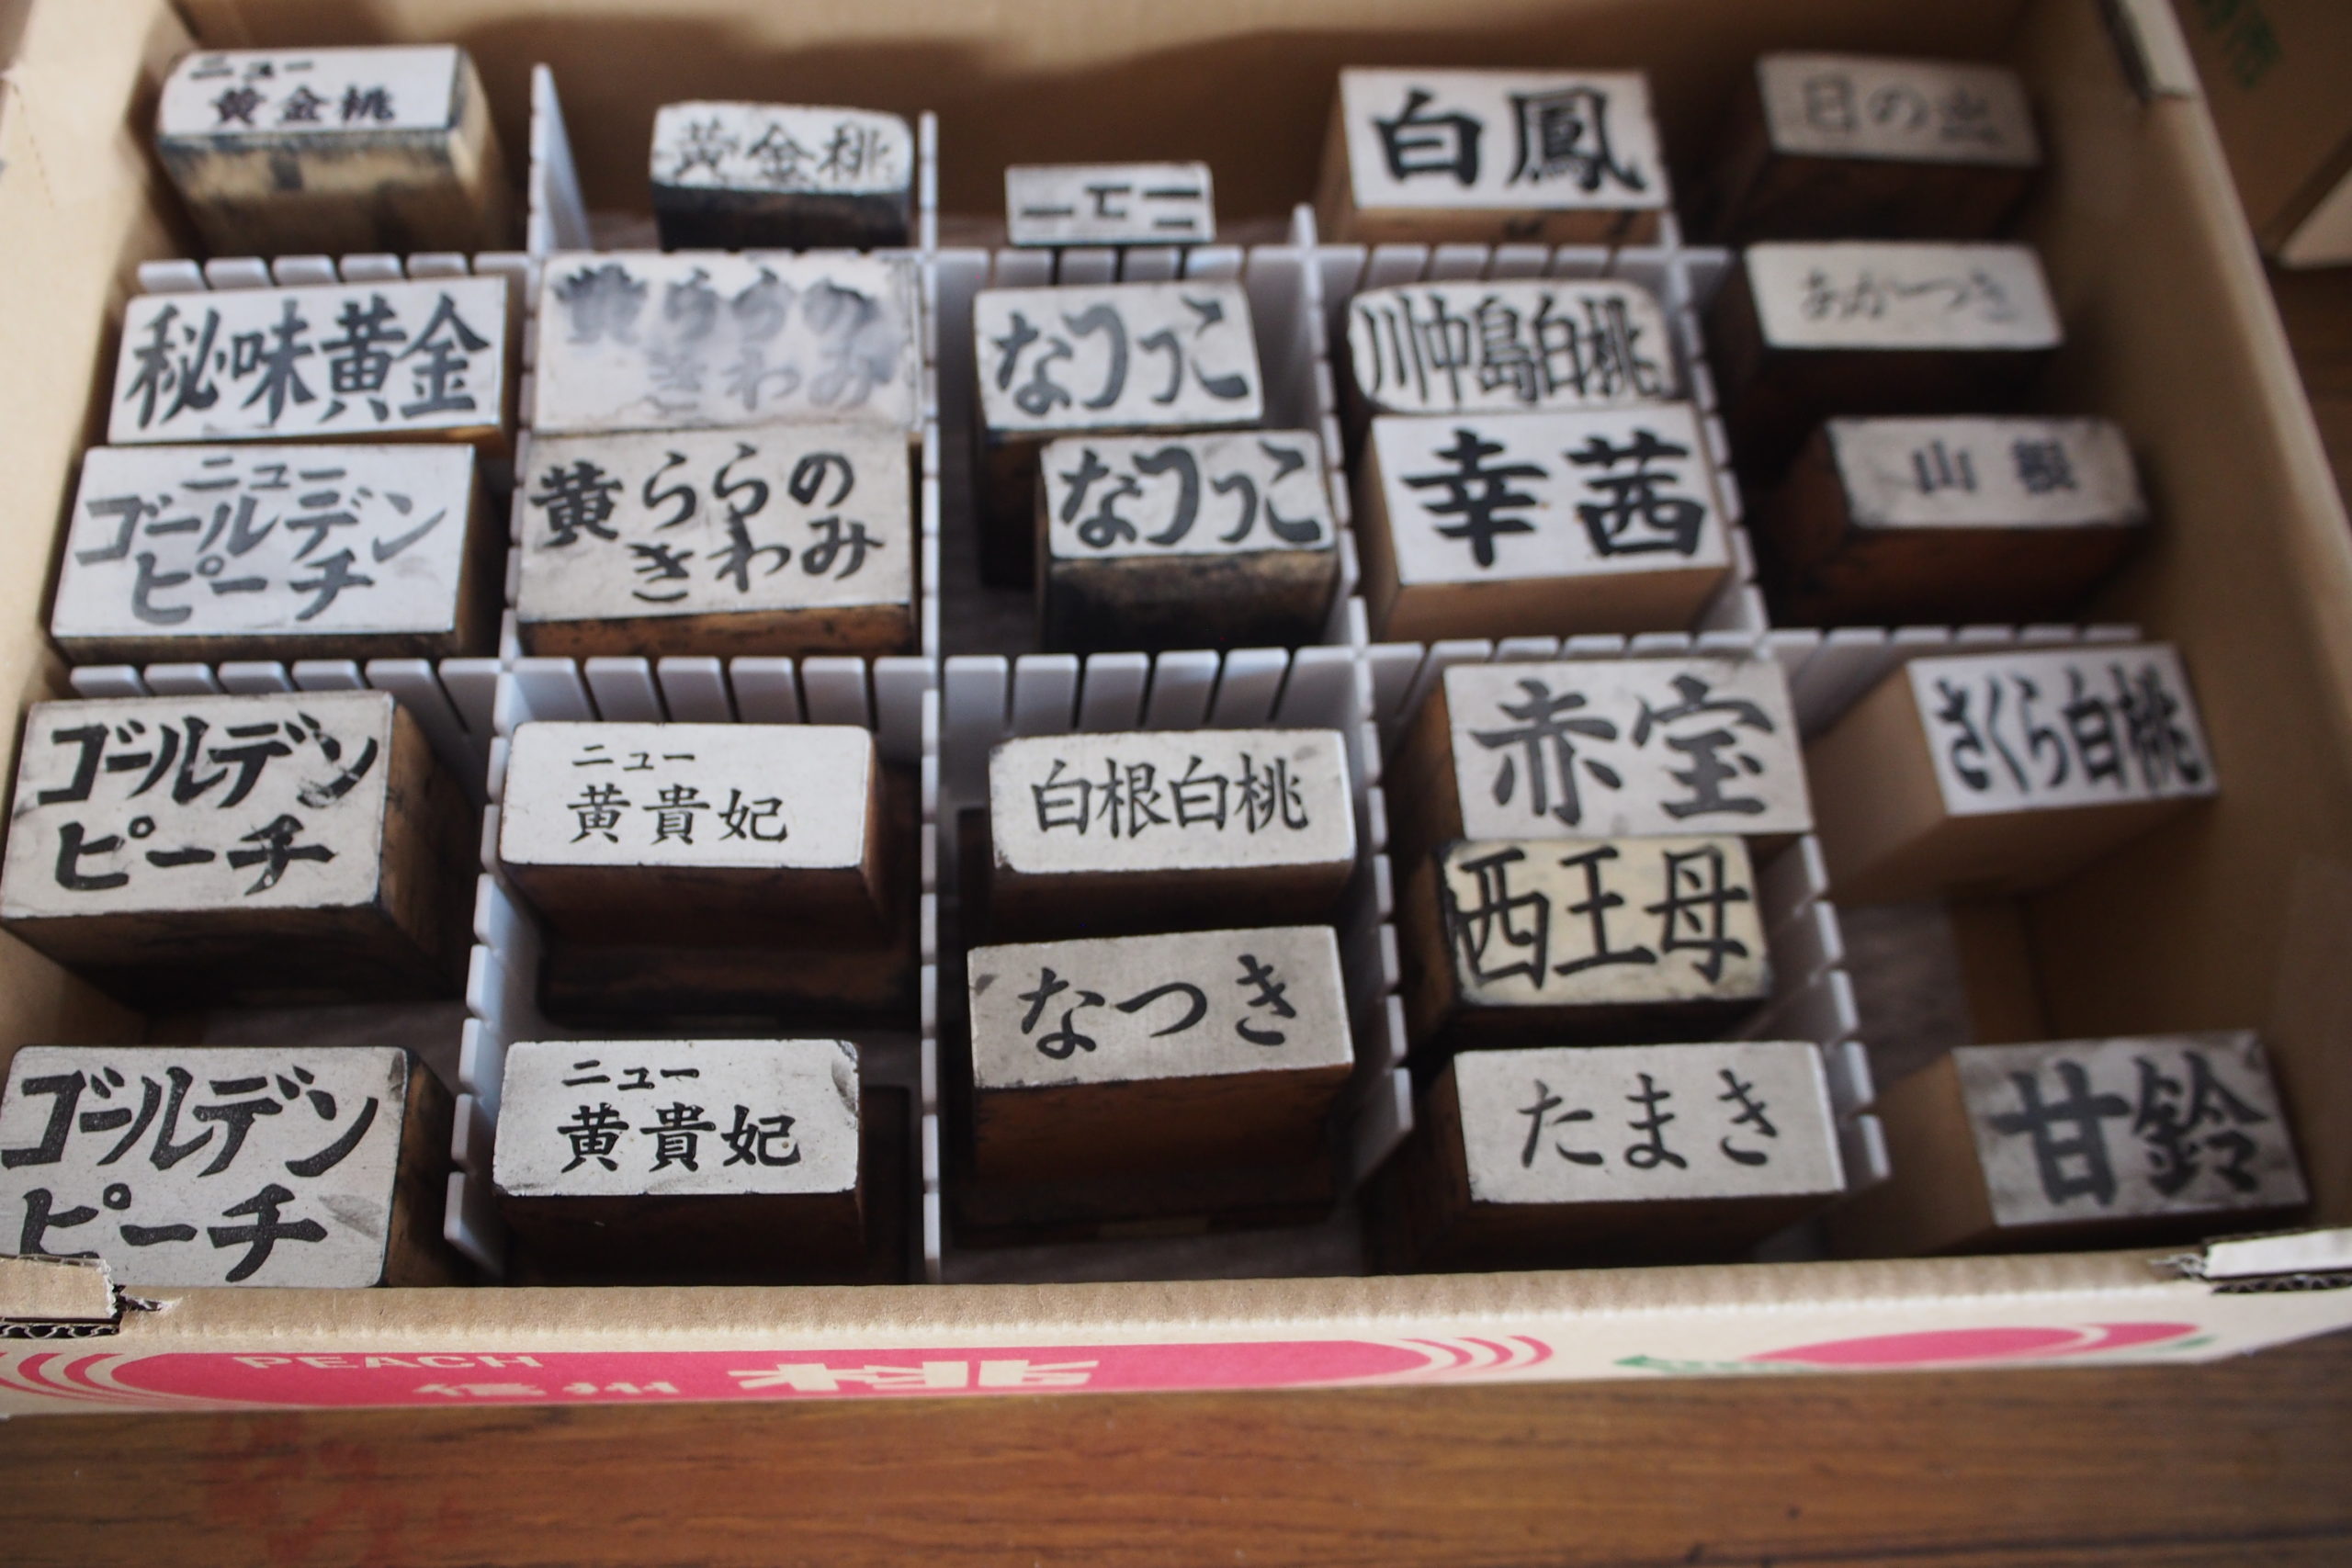 ニュー
黄金桃
黄金桃
ニュー
白鳳
日の出
秘味黄金
黄ららのきわみ
なつっこ
川中島白桃
あかつき
ニュー
ゴールデン
ピーチ
黄ららの
きわみ
なつっこ
幸茜
山根
ゴールデン
ピーチ
ニュー
黄貴妃
白根白桃
赤宝
さくら白桃
西王母
なつき
ゴールデン
ピーチ
ニュー
黄貴妃
たまき
甘鈴
PEACH
信州 桃